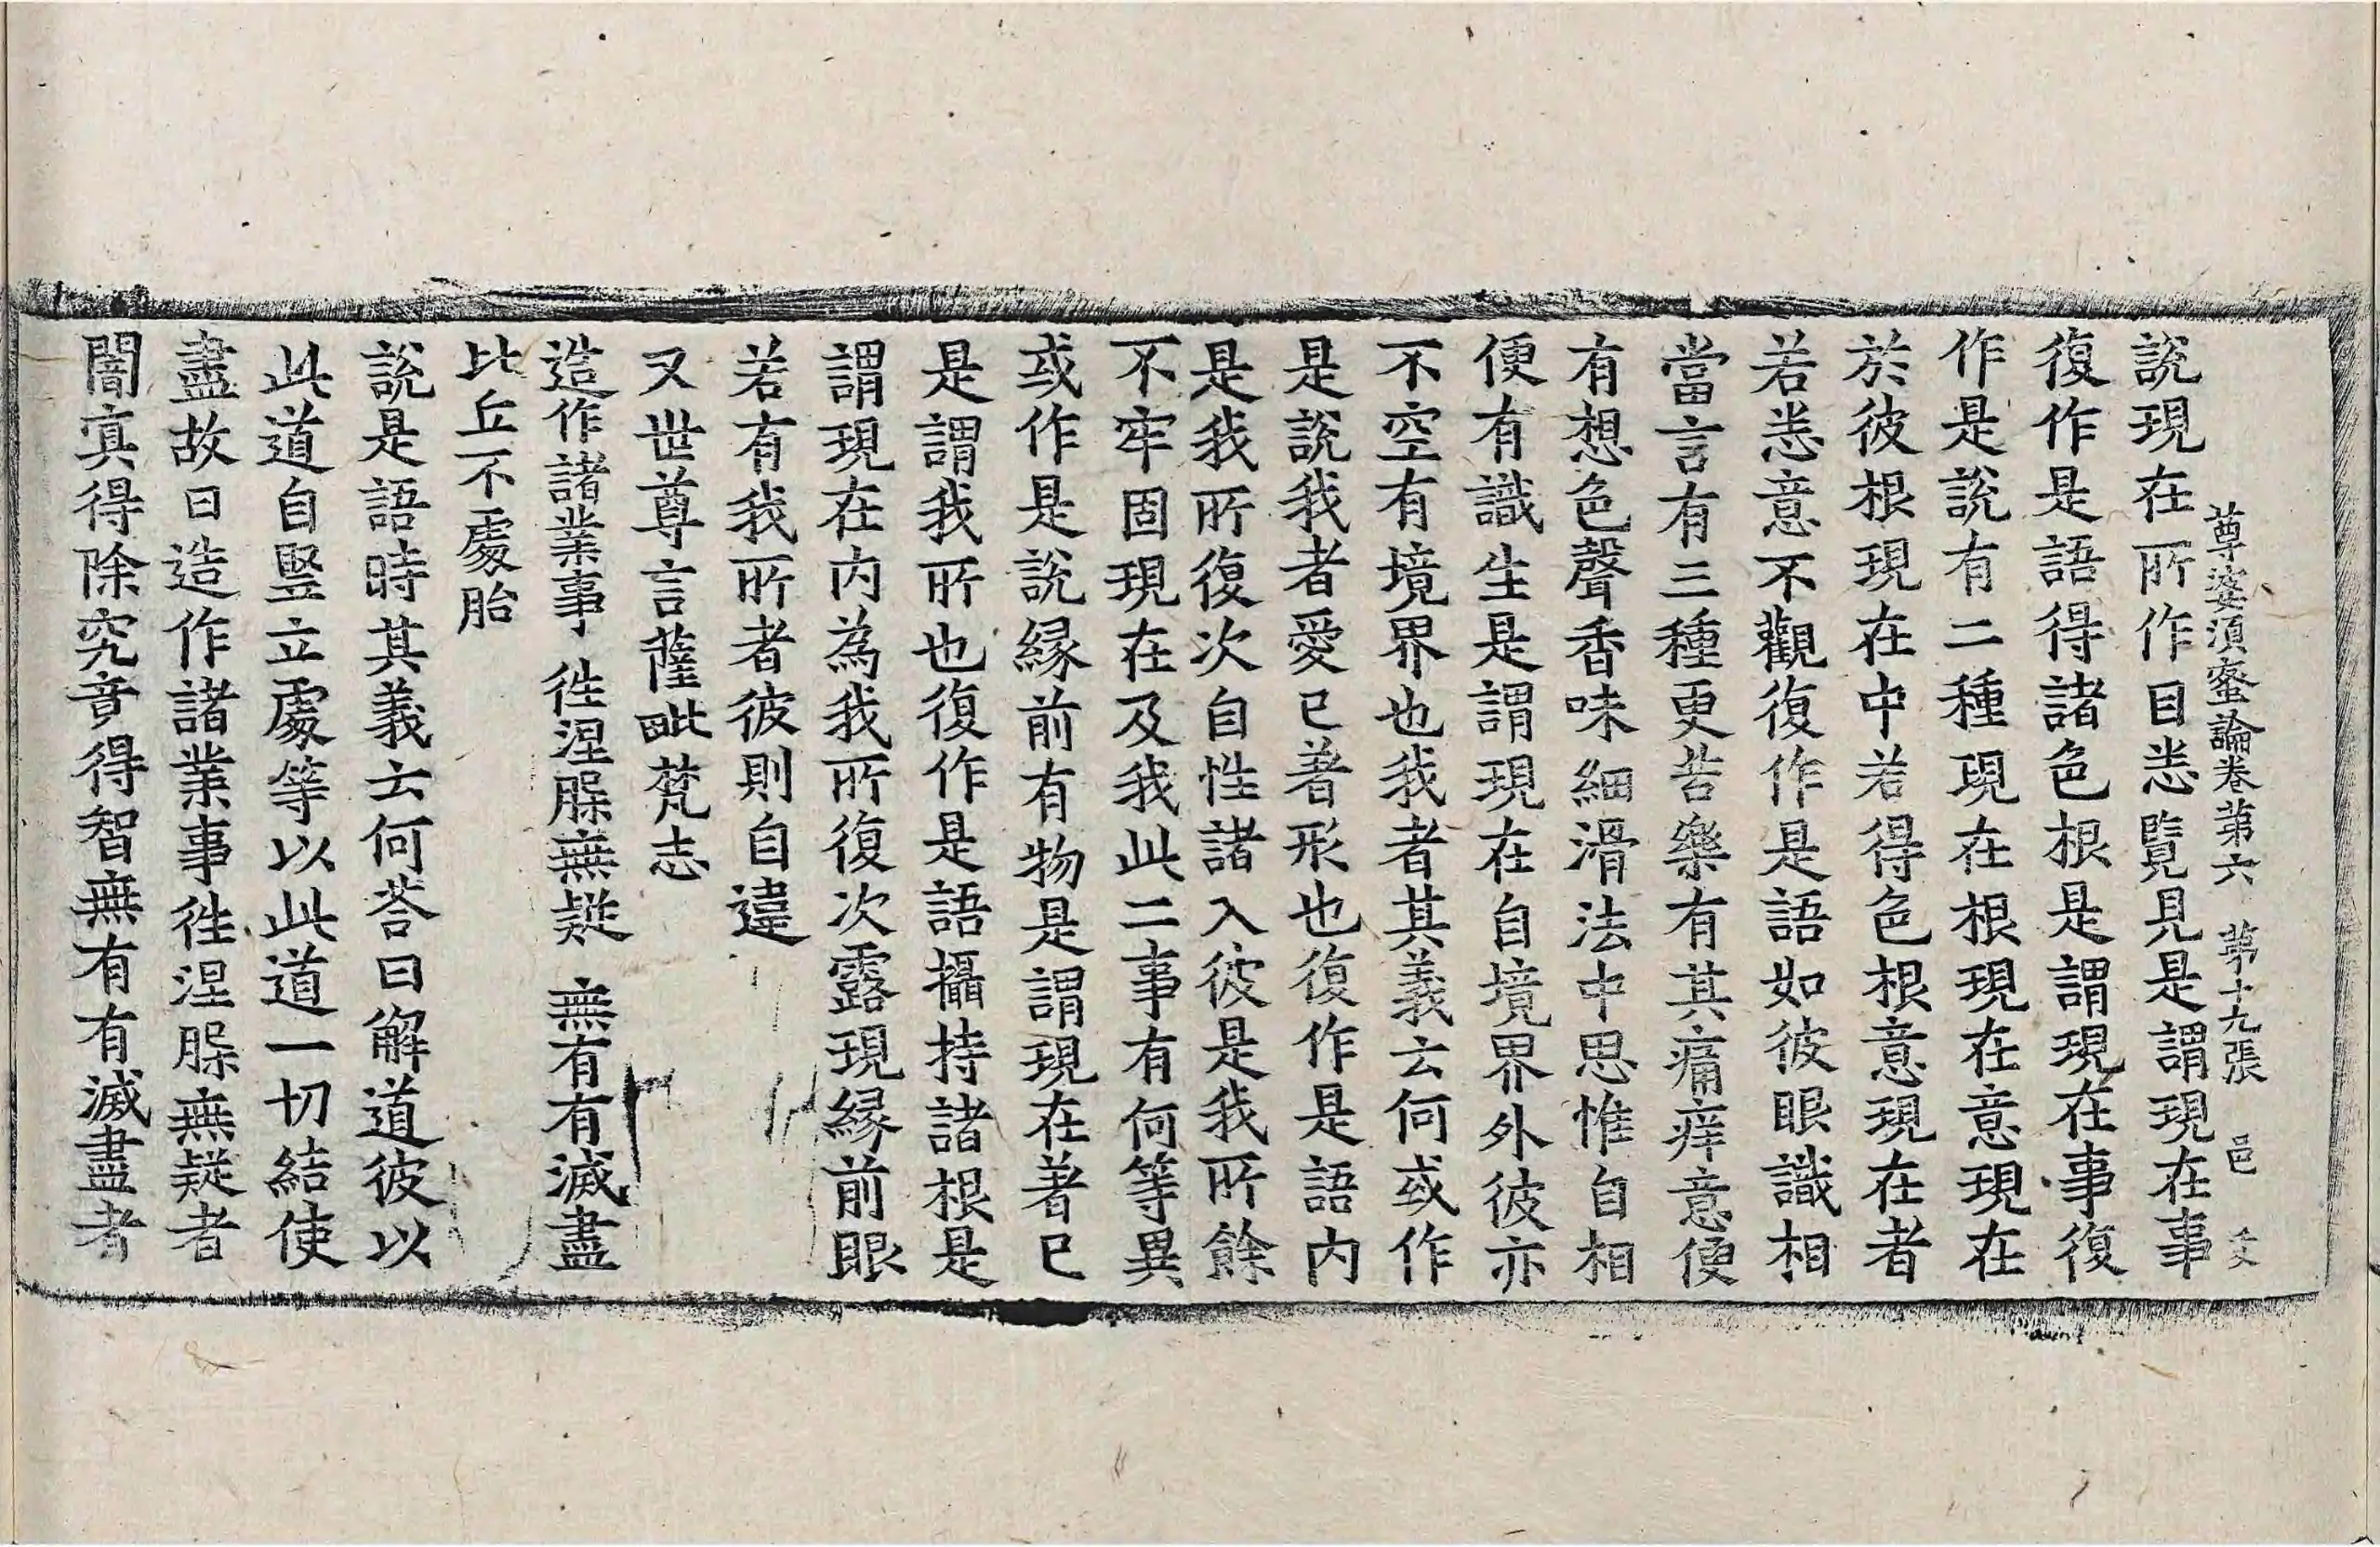 尊婆須蜜論卷第六　第十九張　邑
說現在所作目恙覽見是謂現在事
復作是語得諸色根是謂現在事復
作是說有二種現在根現在意現在
於彼根現在中若得色根意現在者
若恙意不觀復作是語如彼眼識相
當言有三種更苦樂有其痛痒意便
有想色聲香味細滑法中思惟自相
便有識生是謂現在自境界外彼亦
不空有境界也我者其義云何或作
是說我者愛已著形也復作是語內
是我所復次自性諸入彼是我所餘
不牢固現在及我此二事有何等異
或作是說緣前有物是謂現在著已
是謂我所也復作是語攝持諸根是
謂現在内為我所復次露現緣前眼
若有我所者彼則自違
又世尊言薩毗梵志
造作諸業事　徃涅槃無疑　無有有滅盡
比丘不處胎
說是語時其義云何荅曰解道彼以
此道自竪立處等以此道一切結使
盡故曰造作諸業事徃涅槃無疑者
闇冥得除究竟得智無有有滅盡者